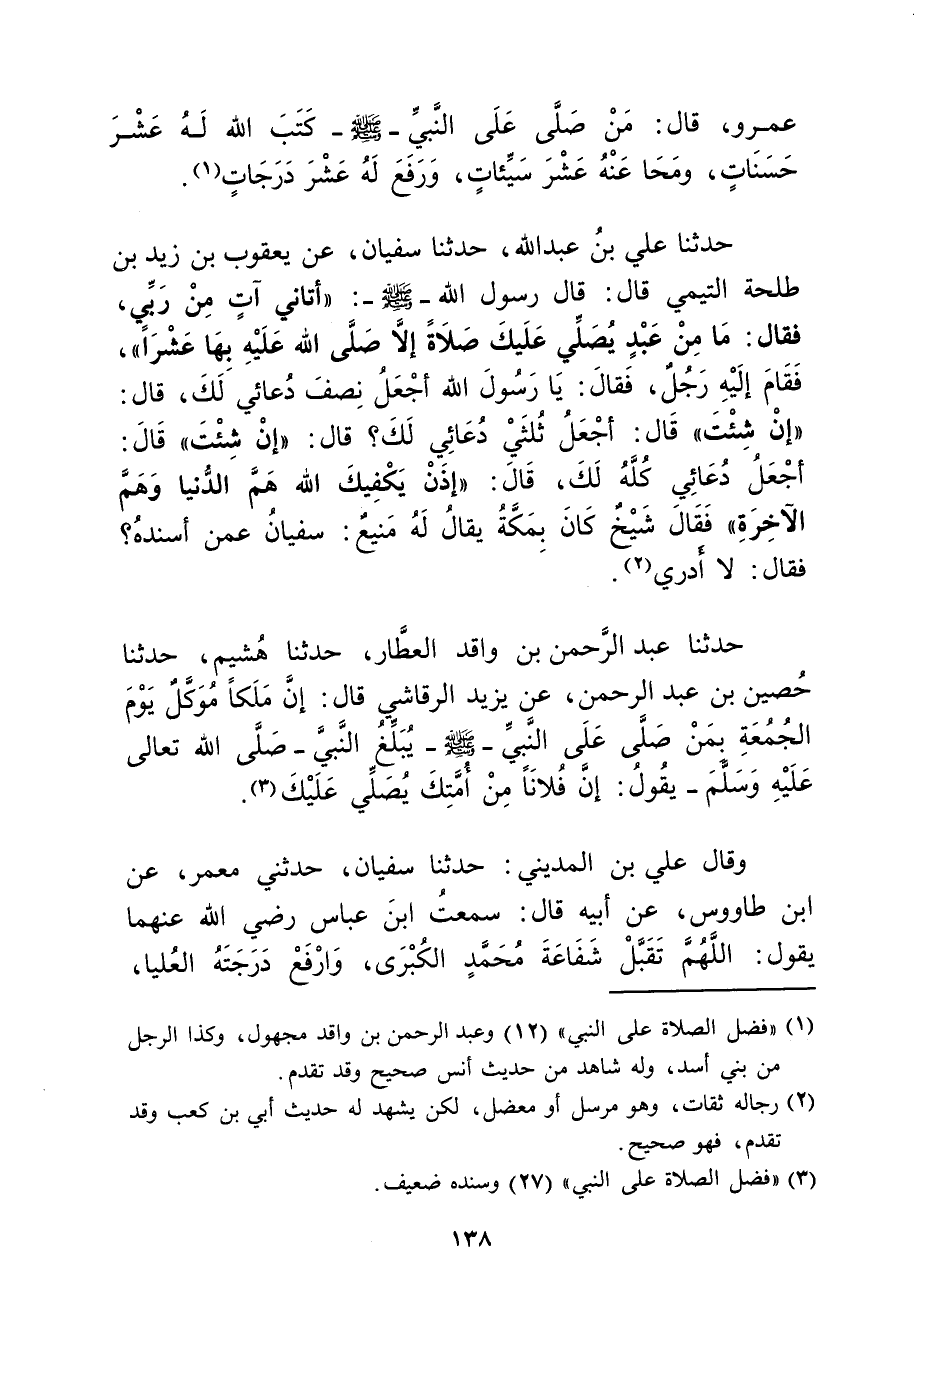 عمـرو، قال: مَنْ صَلَّى عَلَى النَّبيِّ ـ ﷺ ـ كَتَبَ الله لَـهُ عَشْـرَ
حَسَنَاتٍ، ومَحَا عَنْهُ عَشْرَ سَيِّئاتٍ، وَرَفَعَ لَهُ عَشْرَ دَرَجَاتٍ(١).
حدثنا علي بنُ عبدالله، حدثنا سفيان، عن يعقوب بن زيد بن
طلحة التيمي قال: قال رسول الله ـ ﷺ ـ: «أتاني آتٍ مِنْ رَبِّي،
فقال: مَا مِنْ عَبْدٍ يُصَلِّي عَلَيكَ صَلَاةً إلاَّ صَلَّى الله عَلَيْهِ بِهَا عَشْرَاً»،
فَقَامَ إلَيْهِ رَجُلٌ، فَقالَ: يَا رَسُولَ الله أجْعَلُ نِصفَ دُعائي لَكَ، قال:
«إنْ شِئْتَ» قَال: أجْعَلُ ثُلثَيْ دُعَائِي لَكَ؟ قال: «إنْ شِئْتَ» قَالَ:
أجْعَلُ دُعَائِي كُلَّهُ لَكَ، قَالَ: «إذَنْ يَكْفِيكَ الله هَمَّ الدُّنيا وَهَمَّ
الآخِرَةِ» فَقَالَ شَيْخٌ كَانَ بِمَكَّةُ يقالُ لَهُ مَنيعٌ: سفيانُ عمن أسندهُ؟
فقال: لا أَدري(٢).
حدثنا عبد الرَّحمن بن واقد العطَّار، حدثنا هُشيم، حدثنا
حُصين بن عبد الرحمن، عن يزيد الرقاشي قال: إنَّ مَلَكاً مُوَكَّلٌ يَوْمَ
الجُمُعَةِ بِمَنْ صَلَّى عَلَى النَّبيِّ ـ ﷺ ـ يُبَلِّغُ النَّبيَّ ـ صَلَّى الله تعالى
عَلَيْهِ وَسَلَّمَ ـ يقُولُ: إنَّ فُلاناً مِنْ أُمَّتِكَ يُصَلِّي عَلَيْكَ(٣).
وقال علي بن المديني: حدثنا سفيان، حدثني معمر، عن
ابن طاووس، عن أبيه قال: سمعتُ ابنَ عباس رضي الله عنهما
يقول: اللَّهُمَّ تَقَبَّلْ شَفَاعَةَ مُحَمَّدٍ الكُبْرَى، وَارْفَعْ دَرَجَتَهُ العُليا،
(١) «فضل الصلاة على النبي» (١٢) وعبد الرحمن بن واقد مجهول، وكذا الرجل
من بني أسد، وله شاهد من حديث أنس صحيح وقد تقدم.
(٢) رجاله ثقات، وهو مرسل أو معضل، لكن يشهد له حديث أبي بن كعب وقد
تقدم، فهو صحيح.
(٣) «فضل الصلاة على النبي» (٢٧) وسنده ضعيف.
١٣٨